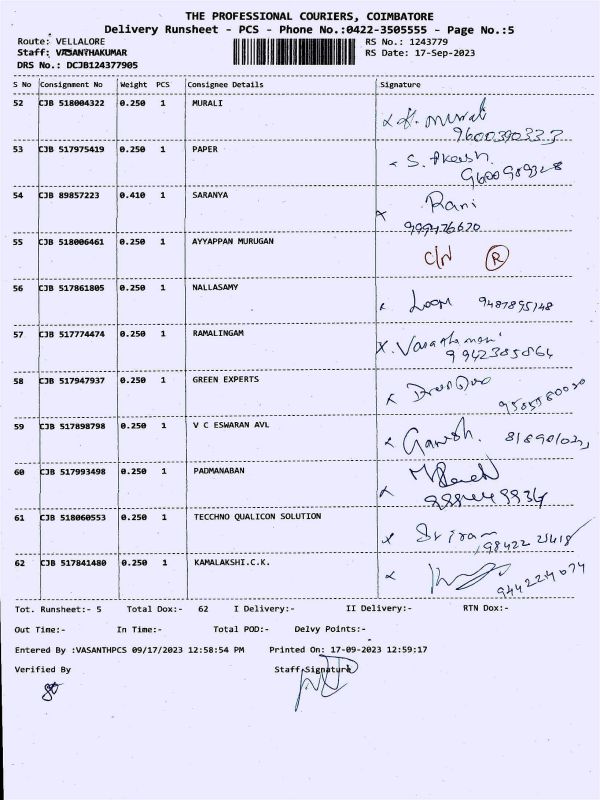 THE PROFESSIONAL COURIERS, COIMBATORE
Delivery Runsheet - PCS - Phone No.:0422-3505555 - Page No.:5
Route: VELLALORE RS No.: 1243779
Staff: VASANTHAKUMAR RS Date: 17-Sep-2023
DRS No.: DCJB124377905
S No Consignment No Weight PCS Consignee Details Signature
52 CJB 518004322 0.250 1 MURALI
9600390333
53 CJB 517975419 0.250 1 PAPER S. Akash.
9600989328
54 CJB 89857223 0.410 1 SARANYA Rani
55 CJB 518006461 0.250 1 AYYAPPAN MURUGAN C/N R
56 CJB 517861805 0.250 1 NALLASAMY 9487895148
57 CJB 517774474 0.250 1 RAMALINGAM
58 CJB 517947937 0.250 1 GREEN EXPERTS
59 CJB 517898798 0.250 1 V C ESWARAN AVL Ganesh.
60 CJB 517993498 0.250 1 PADMANABAN
61 CJB 518060553 0.250 1 TECCHNO QUALICON SOLUTION Sriram
62 CJB 517841480 0.250 1 KAMALAKSHI.C.K.
Tot. Runsheet:- 5 Total Dox:- 62 I Delivery:- II Delivery:- RTN Dox:-
Out Time:- In Time:- Total POD:- Delvy Points:-
Entered By :VASANTHPCS 09/17/2023 12:58:54 PM Printed On: 17-09-2023 12:59:17
Verified By Staff Signature